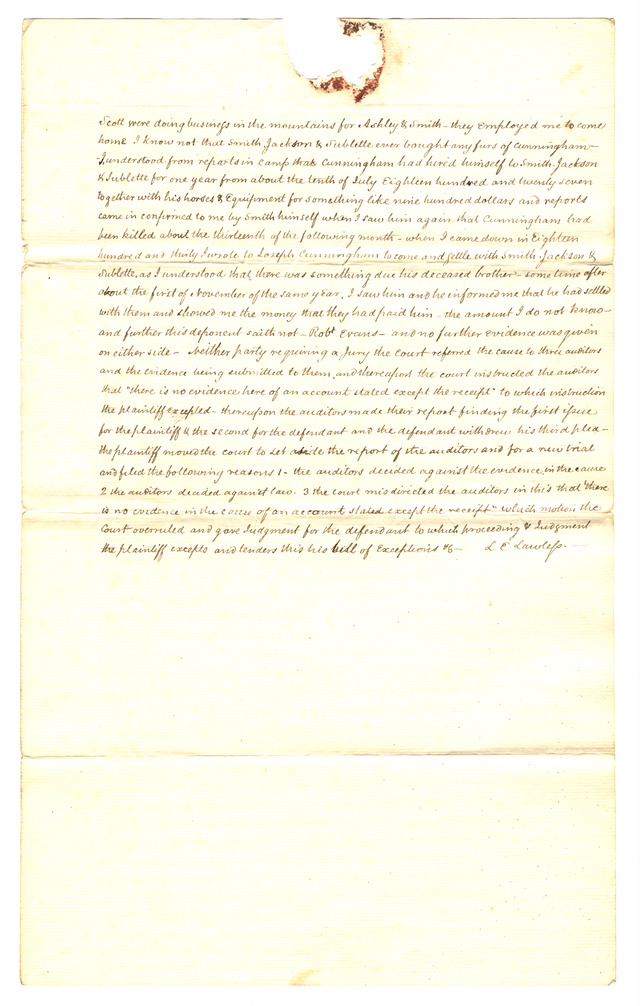 Scott were doing business in the mountains for Ashley & Smith - they employed me to come
home I know not that Smith, Jackson & Sublette ever bought any furs of Cunningham -
- I understood from reports in camp that Cunningham had hired himself to Smith, Jackson
& Sublette for one year from about the tenth of July Eighteen hundred and twenty seven
together with his horses & Equipment for something like nine hundred dollars and reports
came in confirmed to me by Smith himself when I saw him again that Cunningham had
been killed about the thirteenth of the following month - when I came down in Eighteen
hundred and thirty I wrote to Joseph Cunningham to come and settle with Smith, Jackson &
Sublette, as I understood that there was something due his deceased brother - some time after
about the first of November of the same year, I saw him and he informed me that he had settled
with them and showed me the money that they had paid him - the amount I do not know -
and further this deponent saith not - Robt Evans - and no further evidence was given
on either side - Neither party requiring a Jury the Court referred the cause to three auditors
and the evidence being submitted to them, and thereupon the court instructed the auditors
that "there is no evidence here of an account stated except the receipt" to which instruction
the plaintiff excepted - thereupon the auditors made their report finding the first issue
for the plaintiff & the second for the defendant and the defendant withdrew his third plea -
the plaintiff moved the court to set aside the report of the auditors and for a new trial
and filed the following reasons 1 - the auditors decided against the evidence in the cause
2 the auditors decided against law. 3 the court misdirected the auditors in this that "there
is no evidence in the case of an account stated except the receipt" which motion the
Court overruled and gave Judgment for the defendant to which proceeding & Judgment
the plaintiff excepts and tenders this his bill of Exceptions &c - L E Lawless -